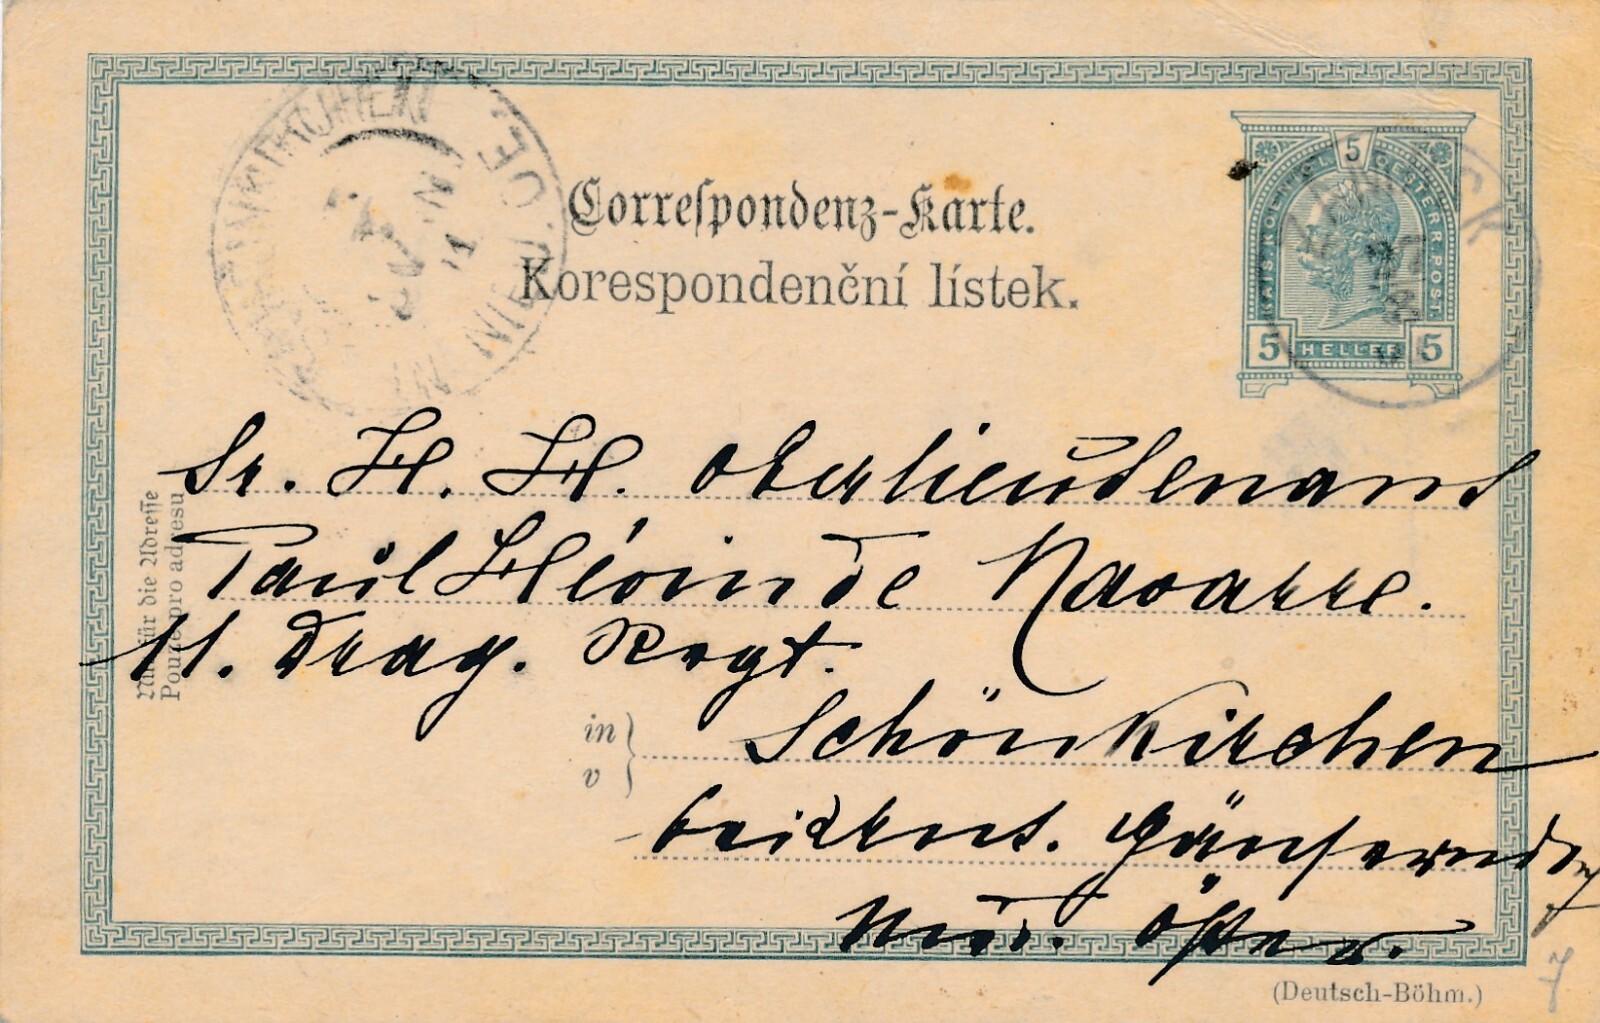 Correspondenz-Karte.
Korespondenční lístek.
5
KAIS. KOENIGL. OESTERR. POST.
5 HELLER 5
Nur für die Adresse
Pouze pro adresu
Sr. H. H. Oberlieutenand
Paul Hlein de Navarre.
11. Drag. Regt.
in
v
Schönkirchen
Gänserndorf
Nied. Österr.
(Deutsch-Böhm.)
7